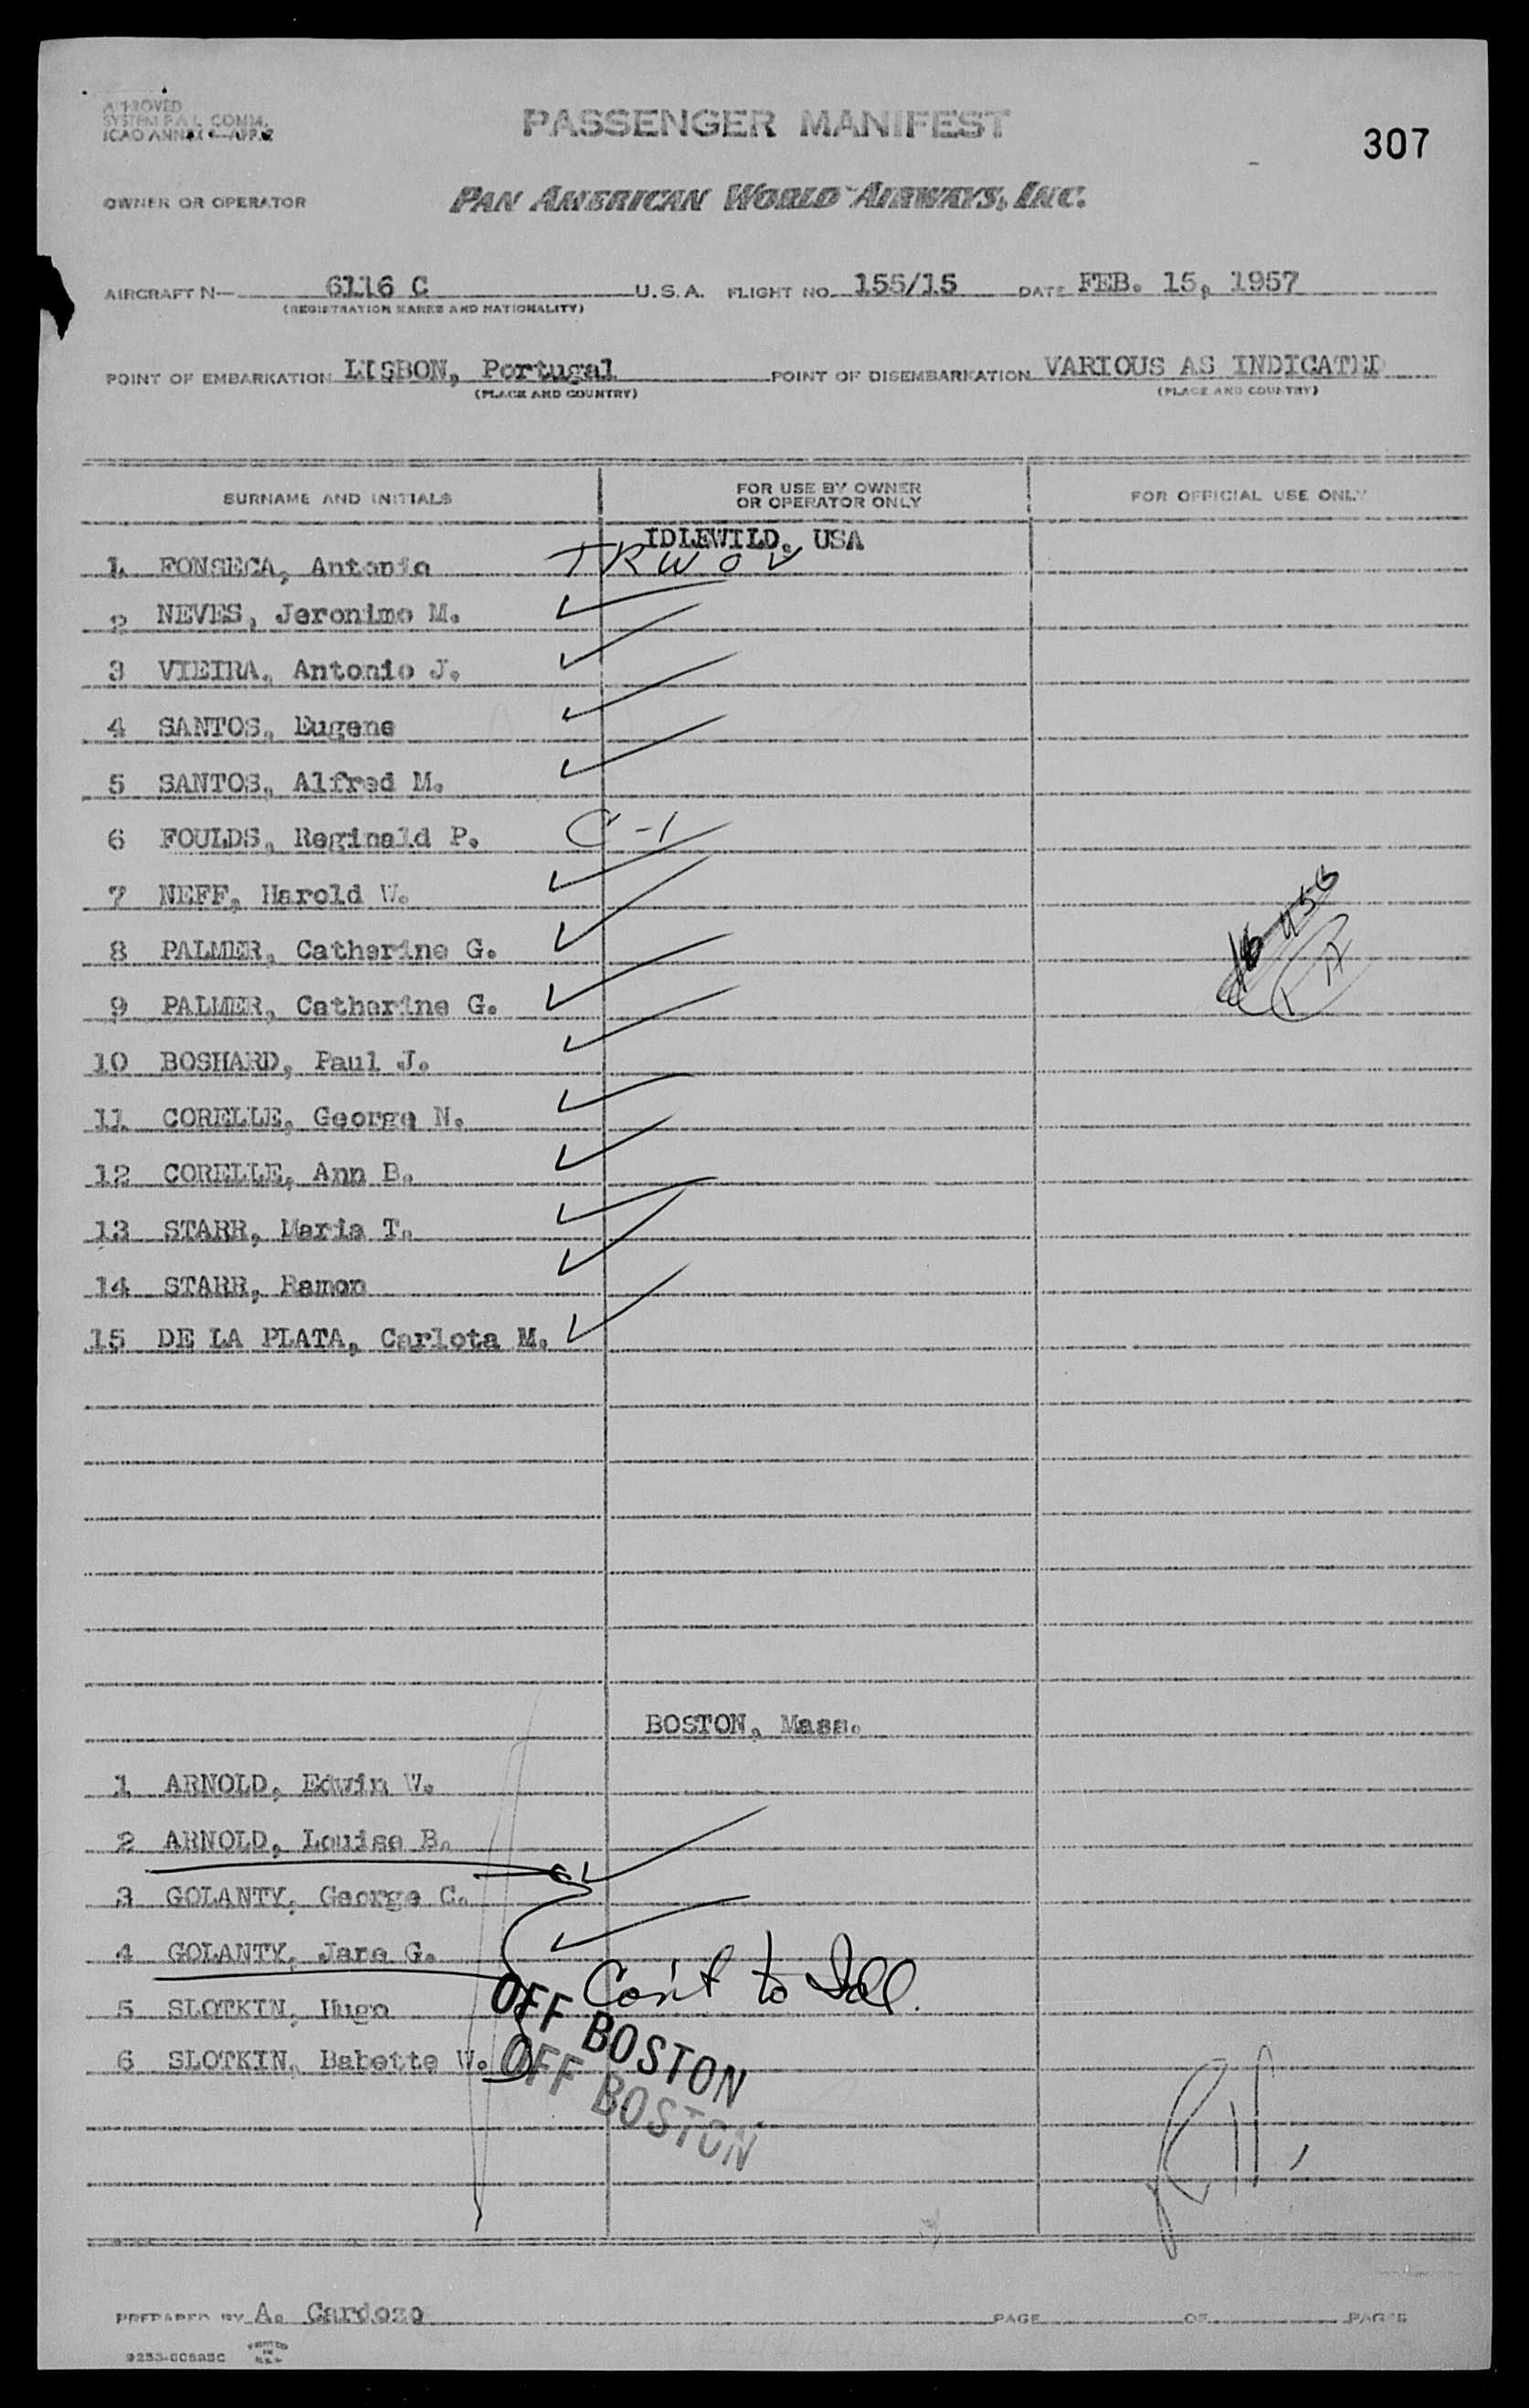 APPROVED
SYSTEM F.A.L. COMM.
ICAO ANNEX 9—APP.
PASSENGER MANIFEST
307
OWNER OR OPERATOR PAN AMERICAN WORLD AIRWAYS, INC.
AIRCRAFT N— 6116 C U.S.A. FLIGHT NO. 155/15 DATE FEB. 15, 1957
(REGISTRATION MARKS AND NATIONALITY)
POINT OF EMBARKATION LISBON, Portugal POINT OF DISEMBARKATION VARIOUS AS INDICATED
(PLACE AND COUNTRY) (PLACE AND COUNTRY)
SURNAME AND INITIALS FOR USE BY OWNER OR OPERATOR ONLY FOR OFFICIAL USE ONLY
IDLEWILD, USA
1 FONSECA, Antonio TRWOV
2 NEVES, Jeronimo M.
3 VIEIRA, Antonio J.
4 SANTOS, Eugene
5 SANTOS, Alfred M.
6 FOULDS, Reginald P. C-1
7 NEFF, Harold W.
8 PALMER, Catherine G.
9 PALMER, Catherine G.
10 BOSHARD, Paul J.
11 CORELLE, George N.
12 CORELLE, Ann B.
13 STARR, Maria T.
14 STARR, Ramon
15 DE LA PLATA, Carlota M.
BOSTON, Mass.
1 ARNOLD, Edwin W.
2 ARNOLD, Louise B.
3 GOLANTY, George C.
4 GOLANTY, Jane G.
Con't to Idl.
5 SLOTKIN, Hugo
OFF BOSTON
6 SLOTKIN, Babette W.
OFF BOSTON
PREPARED BY A. Cardozo PAGE OF PAGES
PRINTED
IN
U.S.A.